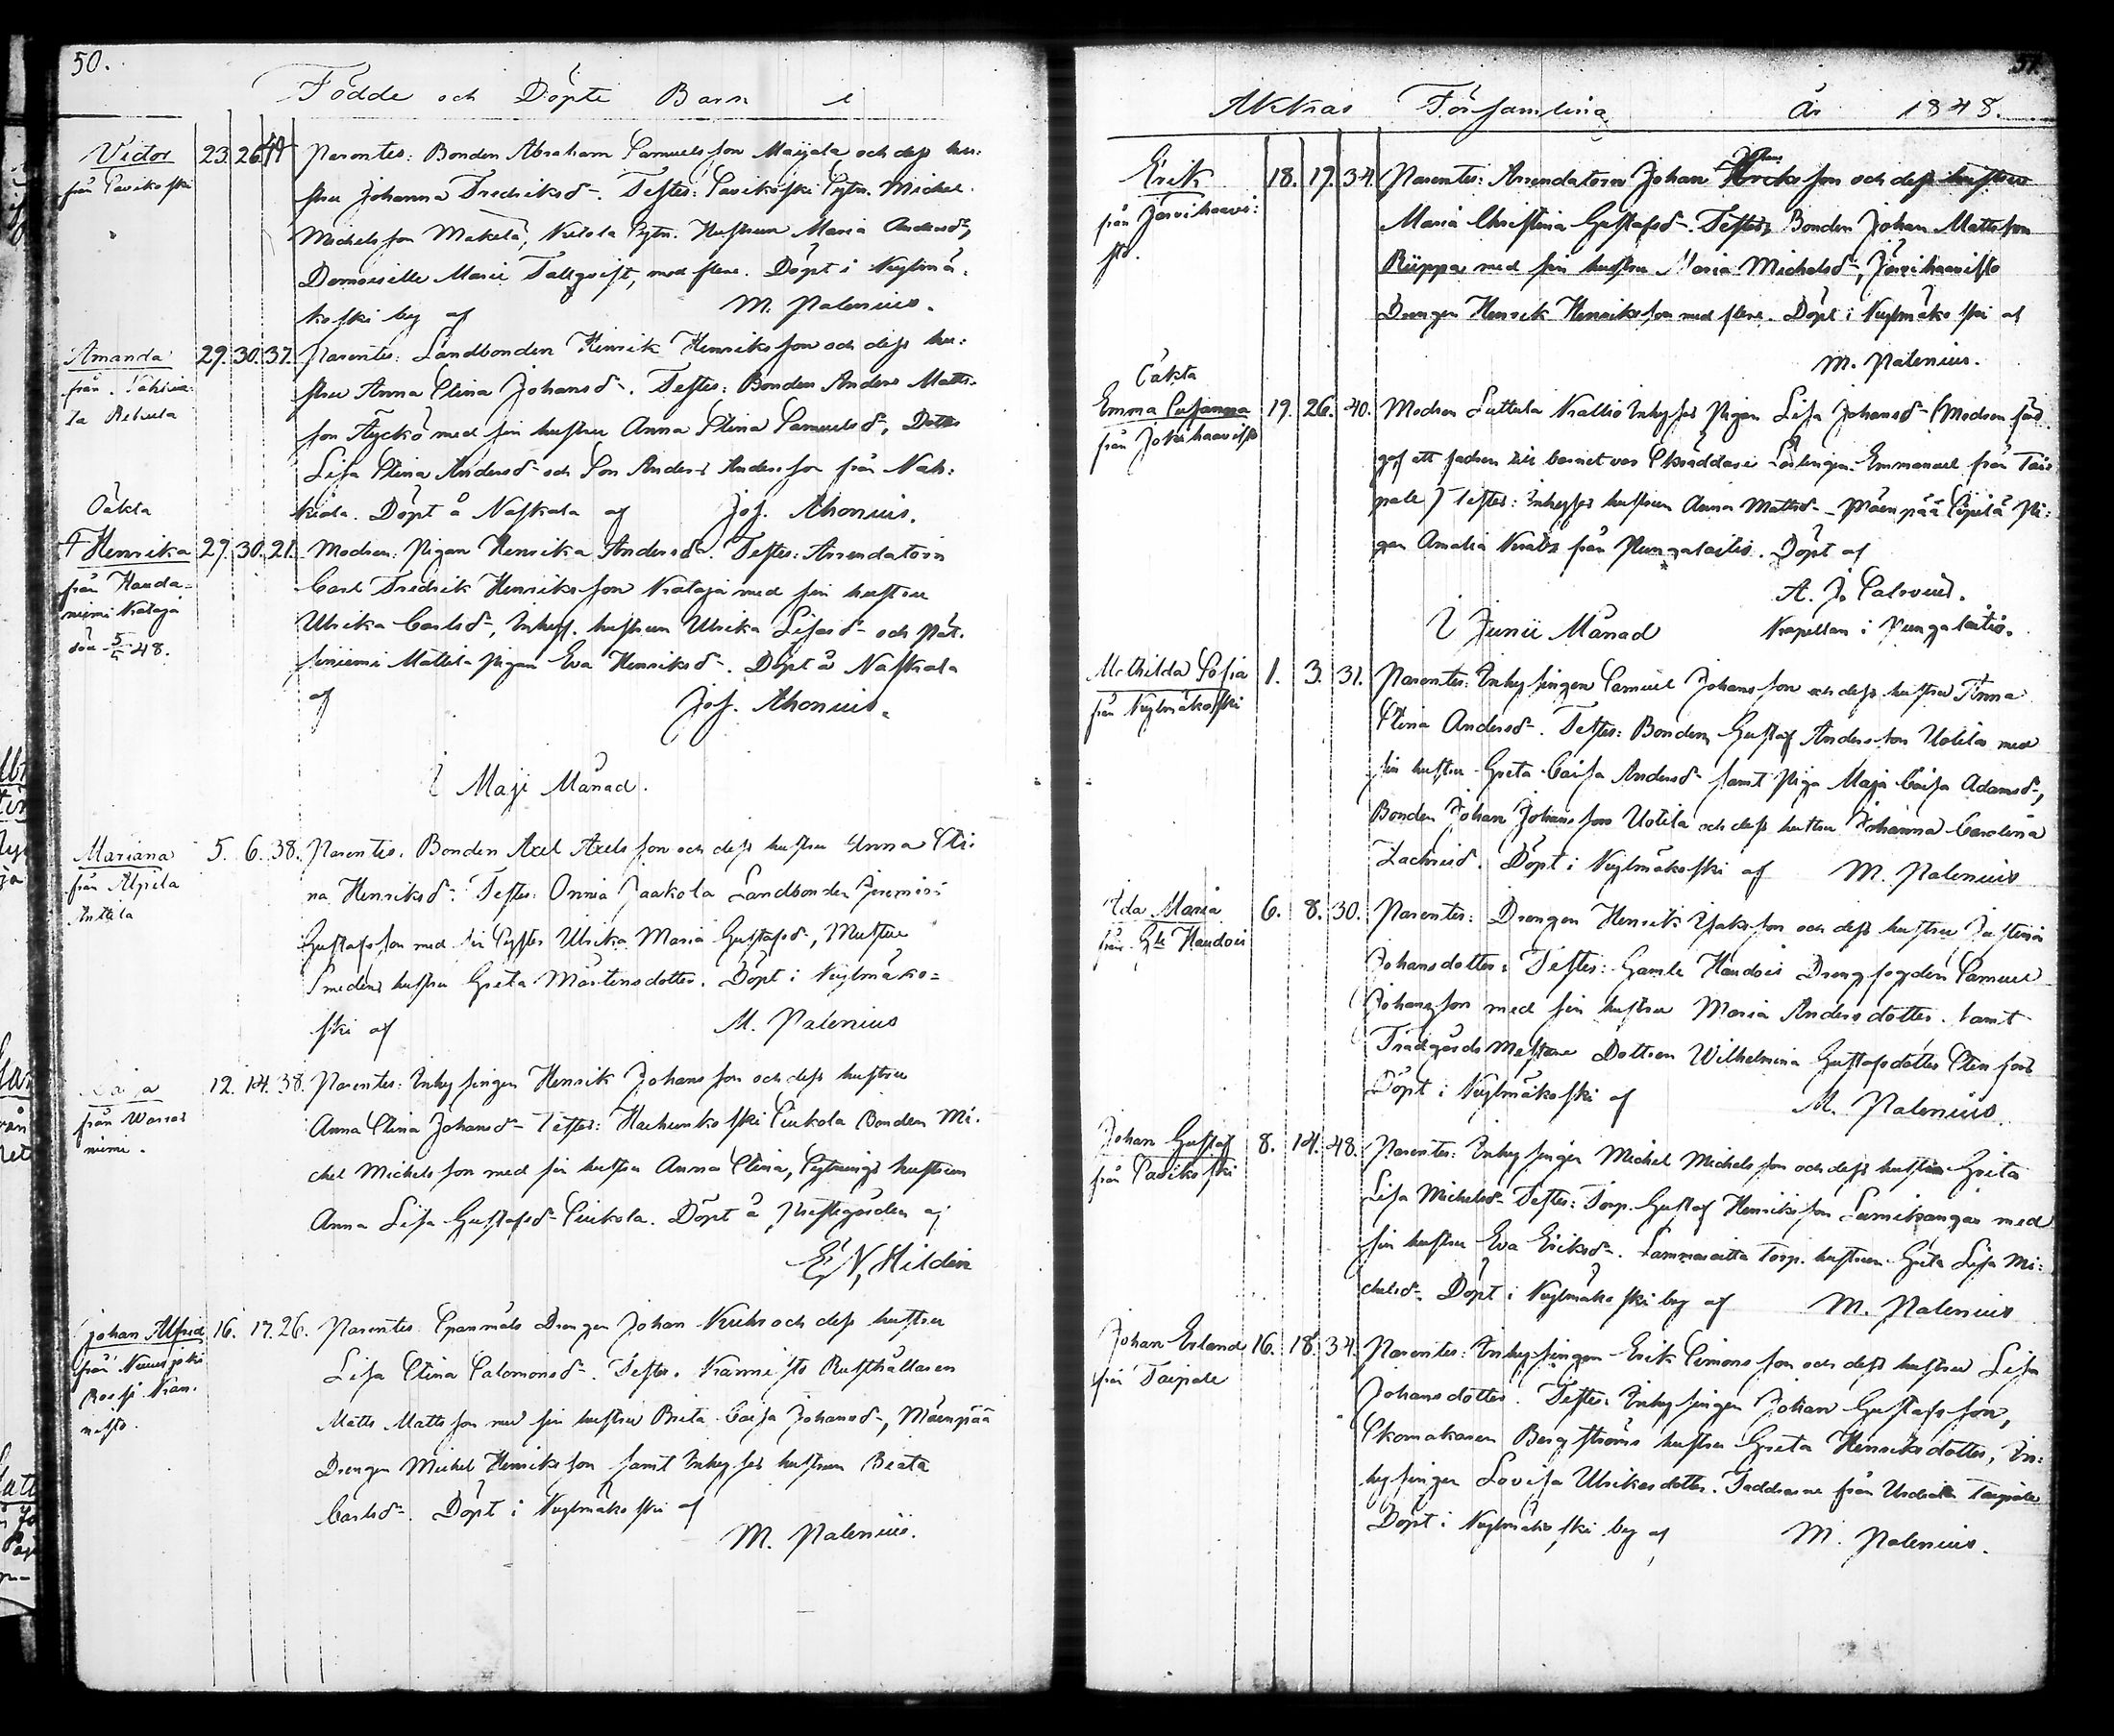 50.
Födde och Döpte Barn i
Victor
från Pavikoski
23. 26. 44
Parentes: Bonden Abraham Samuelsson Maijala och dess hu:
stru Johanna Fredriksdr. Testes: Pavikoski Sytn. Michel
Michelsson Mäkelä, Ketola Sytn. Hustrun Maria Andersdr,
Demoiselle Marie Tallqvist, med flere. Döpt i Kylmä:
koski by af M. Palenius.
Amanda
från
29. 30. 37.
Parentes: Landbonden Henrik Henriksson och dess hu:
stru Anna Stina Johansdr. Testes: Bonden Anders Matts-
son Äyckö med sin hustru Anna Stina Samuelsdr, Dottr
Lisa Stina Andersdr och Son Anders Andersson från Nah:
kiala. Döpt å Naskala af Jos. Ahonius.
Oäkta
† Henrika
från Handa-
niemi Krataja
död 5/5 48.
29. 30. 21.
Modren: Pigan Henrika Andersdr. Testes: Arrendatorn
Carl Fredrik Henriksson Krataja med sin hustru
Ulrika Carlsdr, Inhys. hustrun Ulrika Lisasdr och
Mattila Pigan Eva Henriksdr. Döpt å Naskala
af Jos. Ahonius.
I Maji Månad.
Mariana
från Alpila
Anttila
5. 6. 38.
Parentes: Bonden Axel Axelsson och dess hustru Anna Sti:
na Henriksdr. Testes: Onnia Jaakola Landbonden Jeremias
Gustafsson med sin Syster Ulrika Maria Gustafsdr,
Smedens hustru Greta Mårtensdotter. Döpt i Kylmäko=
ski af M. Palenius
från
niemi.
12. 14. 38.
Parentes: Inhysingen Henrik Johansson och dess hustru
Anna Stina Johansdr Testes: Hauhunkoski Bonden Mi:
chel Michelsson med sin hustru Anna Stina, Sytnings hustrun
Anna Lisa Gustafsdr. Döpt å Prestgården af
E. N. Hildén
Johan Alfred
från
Rossi Kran:
nisto.
16. 17. 26.
Parentes Spanmåls Drengen Johan Kuhr och dess hustru
Lisa Stina Salomonsdr. Testes. Kannisto Rusthållaren
Matts Mattsson med sin hustru Brita Caisa Johansdr, Mäenpää
Drengen Michel Henriksson samt Inhyses hustrun Beata
Carlsdr. Döpt i Kylmäkoski af
M. Palenius.
51.
Akkas Församling År 1848.
Erik
från Jarihaavi:
sto.
18. 19. 34.
Parentes: Arrendatorn Johan Johansson och dess hustru
Maria Christina Gustafsdr. Testes: Bonden Johan Mattsson
Riippa med sin hustru Maria Michelsdr, Jarihaavisto
Drengen Henrik Henriksson med flere. Döpt i Kylmäkoski af
M. Palenius.
Oäkta
Emma Susanna
från Jokihaavisto
19. 26. 40.
Modren Luttula Kallio Inhyses Pigan Lisa Johansdr (Modren föd
gaf att fadren till barnet var Skräddare Lärlingen Emmanuel från Tai:
pale) Testes: Inhyses hustrun Anna Mattsdr Mäenpää Pi:
gan Amalia från Pungalaitio. Döpt af
A. J. Salvenius.
Kapellan i Pungalaitio.
I Junii Månad
Mathilda Sofia
från Kylmäkoski
1. 3. 31.
Parentes: Inhysingen Samuel Johansson och dess hustru Anna
Stina Andersdr. Testes: Bonden Gustaf Andersson Uotila med
sin hustru Greta Caisa Andersdr samt Piga Maja Caisa Adamsdr,
Bonden Johan Johansson Uotila och dess hustru Johanna Carolina
Zachrisdr. Döpt i Kylmäkoski af M. Palenius
Ida Maria
från Gle Handois
6. 8. 30.
Parentes: Drengen Henrik Isaksson och dess hustru Justina
Johansdotter. Testes: Gamle Handois Drengfogden Samuel
Johansson med sin hustru Maria Andersdotter. samt
Trädgårds Mästare Dottren Wilhelmina Gustafsdotter Stenfors
Döpt i Kylmäkoski af M. Palenius.
Johan Gustaf
från Pavikoski
8. 14. 48.
Parentes: Inhysingen Michel Michelsson och dess hustru Greta
Lisa Michelsdr Testes: Torp. Gustaf Henriksson Lumikangas med
sin hustru Eva Eriksdr. Torp. hustrun Greta Lisa Mi:
chelsdr. Döpt i Kylmäkoski by af M. Palenius
Johan Erland
från Taipale
16. 18. 34.
Parentes: Inhysingen Erik Simonsson och dess hustru Lisa
Johansdotter. Testes: Inhysingen Johan Gustafsson,
Skomakaren Bergströms hustru Greta Henriksdotter, In:
hysingen Lovisa Ulrikasdotter. Faddrarne från Taipale
Döpt i Kylmäkoski by af M. Palenius.